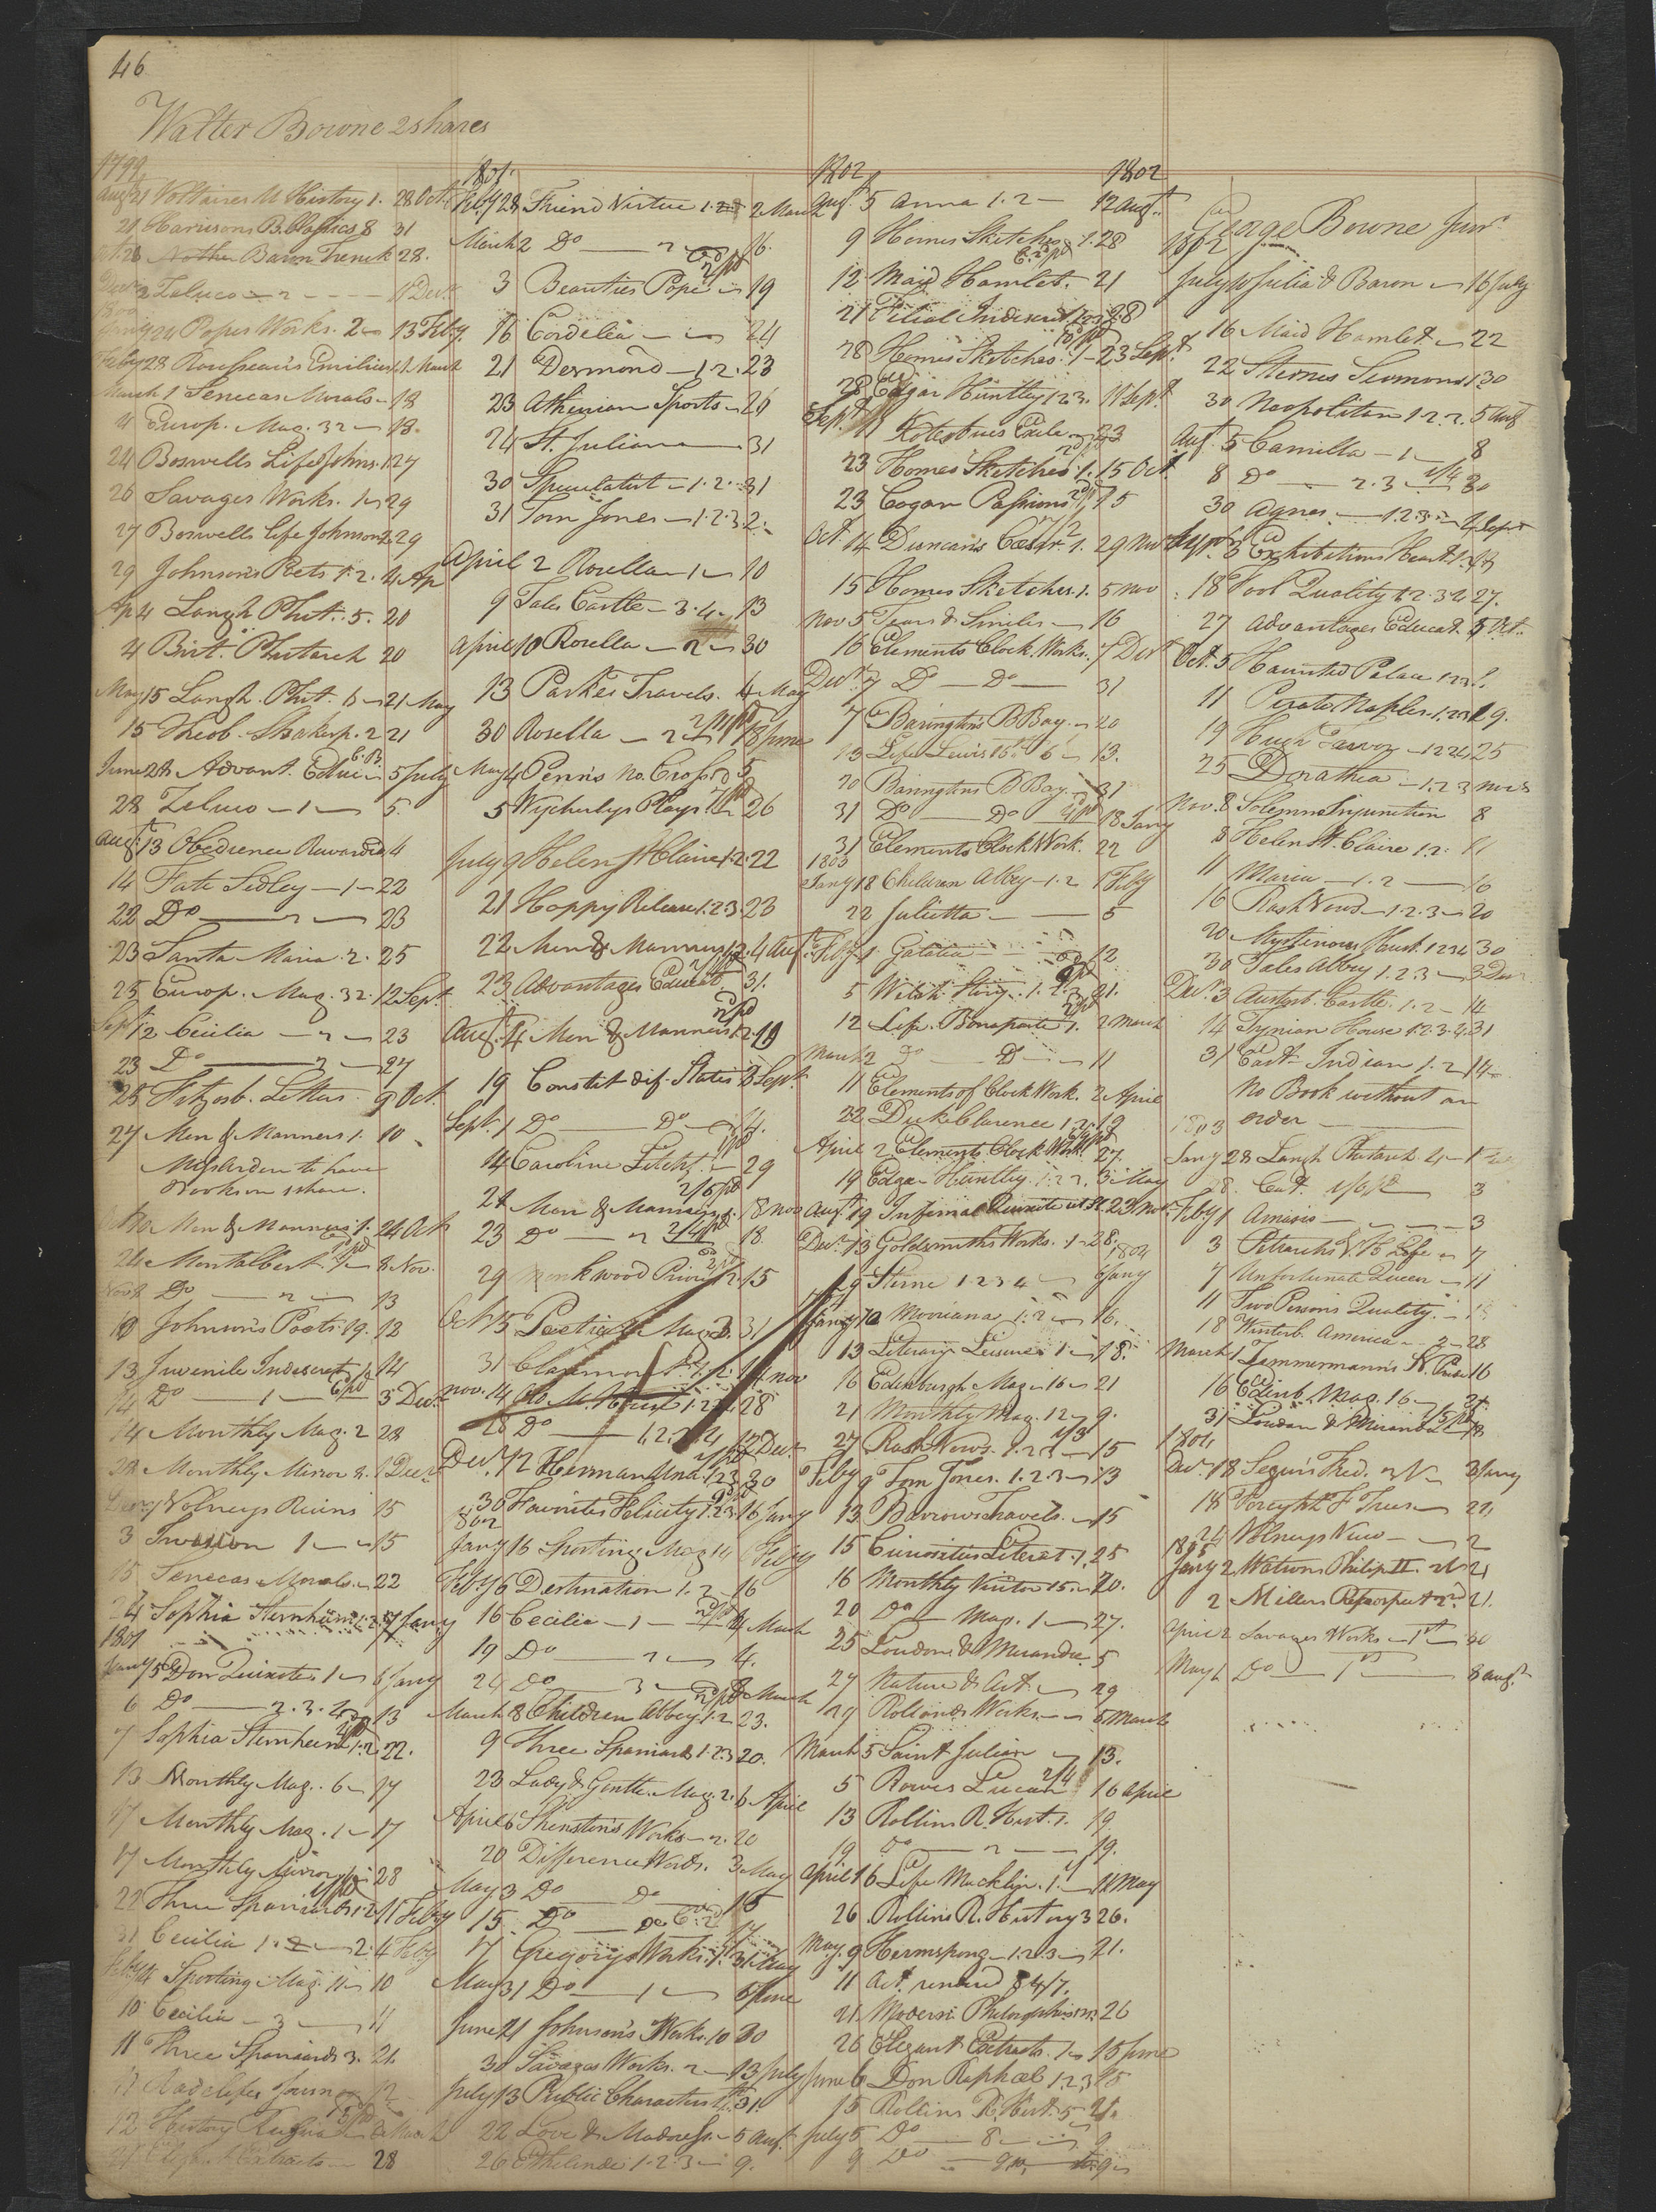 46
Walter Bowne 2 shares
1799
Augt 21 Voltaires U History 1. 28 Oct
21 Harrisons B. Classics 8 31
Oct 28 Baron Trenck 28.
Decr 2 Zeluco 2 11 Decr
1800
Jany 24 Popes Works. 2 13 Feby.
Feby 28 Rousseau's Emilius 1 1 March
March 1 Senecas Morals 18
11 Europ. Mag. 32 18.
24 Boswells Life Johns. 1 27
26 Savages Works. 1 29
27 Boswells life Johnson 2 29
29 Johnsons Poets 1.2. 4 Ap
Ap 4 Langh Plut. 5. 20
4 Brit. Plutarch 20
May 15 Langh. Plut. 6 21 May
15 Theob. Shakesp. 2 21
June 28 Advant. Educ 5 July
28 Zeluco 1 5.
Augt 13 Obedience Rewarded 4
14 Fate Sedley 1 22
22 Do 2 23
23 Santa Maria. 2. 25
25 Europ. Mag. 32. 12 Sept.
Sept 12 Cecilia 2 23
23 Do 3 27
25 Fitzosb. Letters 9 Oct.
27 Men & Manners 1. 10
Miss Arden to have
Books on share.
Men & Manners 1. 24 Oct
24 Montalbert 1 8 Nov.
Nov 8 Do 2 13
10 Johnson's Poets 19. 12
13 Juvenile Indiscret. 14
14 Do 1 6pd 3 Decr
14 Monthly Mag. 2 28
Monthly Mirror 2. 1 Decr
Volneys Ruins 15
3 1 15
15 Senecas Morals 22
24 Sophia Sternheim 1.2. 7 Jany
1801
Jany 5 Don Quixote 1 6 Jany
6 Do 2.3.4 13
7 Sophia Sternheim 1.2 22.
13 Monthly Mag. 6 17
17 Monthly Mag. 1 17
17 Monthly Mirror 28
22 Three Spaniards 1.2 11 Feby
31 Cecilia 1.2 4 Feby
Feby 4 Sporting Mag. 11 10
10 Cecilia 3 11
11 Three Spaniards 3. 21.
Radcliffes Journey 12
12 History
Extracts 28
1801
Feby 28 Friend Virtue 1.2 2 March
March 2 Do 2 16.
3 Beauties Pope 19
16 Cordelia 24
21 Desmond 1.2. 23
23 Athenian Sports 26
24 St. Julian 31
30 Speculatist 1.2. 31
31 Tom Jones 1.2.3 2.
April 2 Rosella 1 10
9 Tales Castle 3.4. 13
April 10 Rosella 2 30
13 Parkes Travels. 4 May
30 Rosella 2 18 June
May 4 Penn's No. Cross 5
5 Wycherleys Plays 26
July 9 Helen St Claire 1.2 22
21 Happy Release 1.2.3 23
22 Men & Manners 1.2. 4 Augt
23 Advantages Educat 31.
Augt. 4 Men & Manners 1.2. 19
19 Constit dif. States 3 Sept.
Sept. 1 Do Do 14.
14 Caroline Litchf. 29
21 Men & Manners 1. 8 Nov
23 Do 2 18
29 Monkwood Priory 1.2. 15
Oct 15 Poetical Mag. 2. 31
31 Claremont 14 Nov
Nov. 14 28
28 Do 1.2.3.4 12 Decr
Decr. 12 Herman Una 1.23 30
30 Favorites Felicity 1.2.3. 16 Jany
1802
Jany 16 Sporting Mag 14 6 Feby
Feby 6 Destination 1.2 16
16 Cecilia 1 4 March
19 Do 2 4.
24 Do 3 8 March
March 8 Children Abbey. 1.2 23.
9 Three Spaniards 1.2.3 20.
23 Lady & Gentle. Mag. 2. 6 April
April 6 Shenstons Works 2. 20
20 Difference Words. 3 May
May 3 Do Do 15
15 Do Do 17
17 Gregorys Works. 1. 31 May
May 31 Do 1 5 June
June 21 Johnson's Works. 10 30
30 Savages Works. 2 13 July
July 13 Public Characters 31.
22 Love & Madness. 5 Augt.
26 Ethelinde 1.2.3 9.
1802
Augt. 5 Anna 1.2 12 Augt.
9 Homes Sketches 1. 28
12 Maid Hamlet. 21
21 Filial Indiscret 1.2.3 28
28 Homes Sketches. 1 23 Sept.
28 Edgar Huntley 1.2.3. 11 Sept.
Sept. 11 Kotzebues Exile 23
23 Homes Sketches 1. 15 Oct
23 Cogan Passions 15
Oct. 14 Duncan's Cæsar. 1. 29 Nov
15 Homes Sketches. 1. 5 Nov
Nov 5 Tears & Smiles 16
16 Elements Clock. Works. 7 Decr
Decr. 7 Do Do 31
7 Barington's B Bay. 20
13 Life Lewis 15th 6 13.
20 Baringtons B Bay. 31
31 Do Do 18 Jany
31 Elements Clock Work. 22
1803
Jany 18 Children Abbey 1.2 1 Feby
22 Julietta 5
Feby 1 Galatea 12
5 Welsh Story. 1.2.3 21.
12 Life Bonaparte 1. 2 March
March 2 Do Do 11
11 Elements of Clock Work. 2 April
22 Duke Clarence 1.2. 19
April 2 Elements Clock Work 27.
19 Edgar Huntley. 1.2.3. 3 May
Augt 19 Infernal Quixote 23 Nov
Decr. 13 Goldsmiths Works. 1 28.
1804
29 Sterne 1.2.3.4 6 Jany
Jany 10 Mooriana 1.2 16.
13 Literary Leisures 1. 18.
16 Edinburgh Mag 16 21
21 Monthly Mag. 12 9.
27 Rash Vows. 1.2.3 15
Feby 9 Tom Jones. 1.2.3 13
13 Barrows Travels. 15
15 Curiosities Literat. 1. 25
16 Monthly Visitor 15. 20.
20 Do Mag. 1 27.
25 Loudon & Miranda 5
27 Nature & Art. 29
29 Rollands Works 5 March
March 5 Saint Julian 13.
5 Rowes Lucan 16 April
13 Rollins R. Hist. 1. 19.
19 Do 2 19.
April 16 Life Macklin. 1. 11 May
26 Rollins R. History 3 26.
May. 9 Hermsprong 1.2.3 21.
11 Act renewd $4/7.
21 Modern Philosophers 26
26 Elegant Extracts. 1 15 June
June 6 Don Raphael 1.2.3 15
15 Rollins R. Hist. 5 21.
July 5 Do 8 9
9 Do 9
1802
George Bowne Junr
1802
July 10 Julia & Baron 16 July
16 Maid Hamlet 22
22 Sternes Sermons 1 30
30 Neopolitan 1.2.3. 5 Augt
Augt. 5 Camilla 1 8
8 Do 2.3 30
30 Agnes 1.2.3 4 Sept
Sept. 3 Exhibitions Heart 18
18 Fool Quality 1.2.3.4 27.
27 Advantages Educat. 5 Oct.
Oct. 5 Haunted Palace 1.2.3
11 Pirate Naples 1.2.3 19.
19 Hugh Trevor 1.2.3.4 25
25 Dorothea 1.2.3 Nov 8
Nov. 8 Solemn Injunction 8
8 Helen St. Claire 1.2. 11
11 Maria 1.2 16
16 Rash Vows 1.2.3 20
20 Mysterious Hand. 1.2.3.4 30
30 Tales Abbey 1.2.3 3 Decr
Decr. 3 Austenb. Castle. 1.2 14
14 Tynian House 1.2.3.4. 31
31 East Indian 1.2 14
No Book without an
order
1803
Jany 28 Langh Plutarch. 4 1
28. Cat. 3
Feby 1 Amasis 3
3 Petrarchs Life 7
7 Unfortunate Queen 11
11 Two Persons Quality
18 Winterb. America 2 28
March 1 Zemmermann's N. Pride 16
16 Edinb. Mag. 16 31
31 Loudon & Miranda
1804
Decr. 18 Segurs Fred. 3 Jany
18 Forsyth F Trees 24
24 Volneys View 2
1805
Jany 2 Watsons Philip II. 21
2 Millers Retrospect 2nd. 21.
April 2 Savages Works 1st 30
May 1 Do 1st 8 Augt.